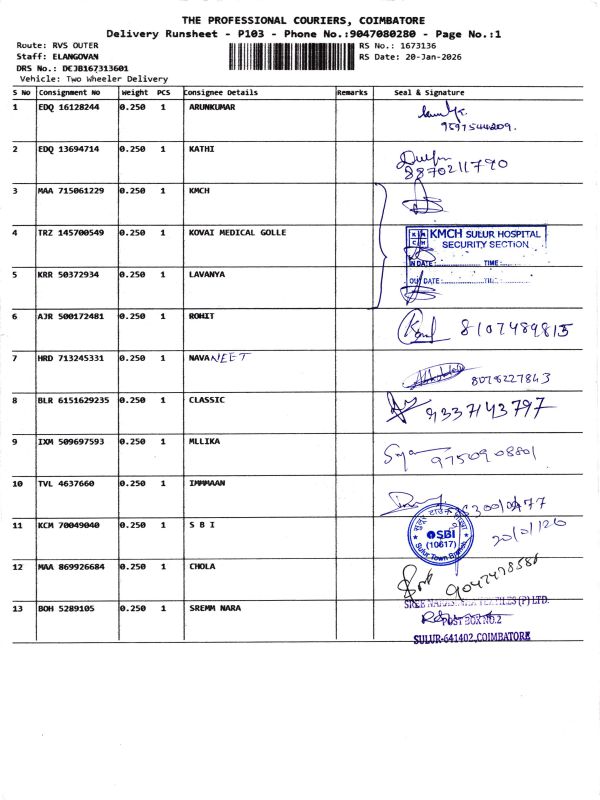 THE PROFESSIONAL COURIERS, COIMBATORE
Delivery Runsheet - P103 - Phone No.:9047080280 - Page No.:1
Route: RVS OUTER RS No.: 1673136
Staff: ELANGOVAN RS Date: 20-Jan-2026
DRS No.: DEJB167313601
Vehicle: Two Wheeler Delivery
S No Consignment No Weight PCS Consignee Details Remarks Seal & Signature
1 EDQ 16128244 0.250 1 ARUNKUMAR
9597544209.
2 EDQ 13694714 0.250 1 KATHI
8870211790
3 MAA 715061229 0.250 1 KMCH
4 TRZ 145700549 0.250 1 KOVAI MEDICAL GOLLE
KMCH SULUR HOSPITAL
SECURITY SECTION
IN DATE: TIME:
OUT DATE: TIME:
5 KRR 50372934 0.250 1 LAVANYA
6 AJR 500172481 0.250 1 ROHIT
8107489815
7 HRD 713245331 0.250 1 NAVANEET
8078227843
8 BLR 6151629235 0.250 1 CLASSIC
9337143797
9 IXM 509697593 0.250 1 MLLIKA
9750908801
10 TVL 4637660 0.250 1 IMMMAAN
11 KCM 70049040 0.250 1 S B I
SBI
(10617)
Sulur Town Branch
20/01/126
12 MAA 869926684 0.250 1 CHOLA
13 BOH 5289105 0.250 1 SREMM NARA
POST BOX NO.2
SULUR-641402,COIMBATORE